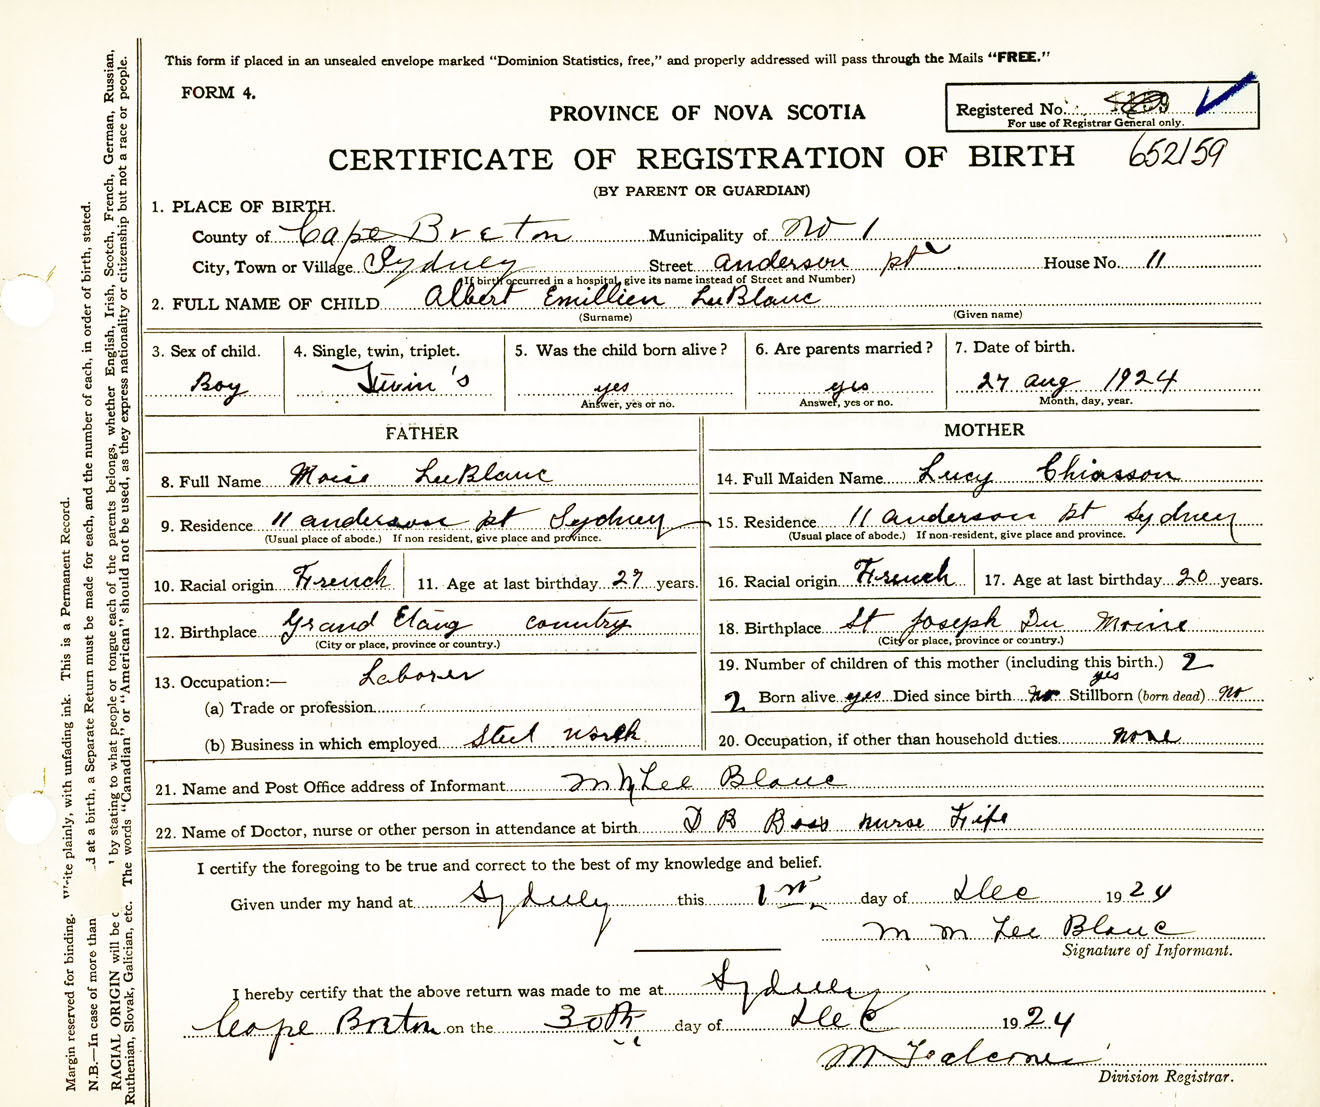 This form if placed in an unsealed envelope marked "Dominion Statistics, free," and properly addressed will pass through the Mails "FREE."
FORM 4.
PROVINCE OF NOVA SCOTIA
Registered No.
For use of Registrar General only.
CERTIFICATE OF REGISTRATION OF BIRTH 652159
(BY PARENT OR GUARDIAN)
1. PLACE OF BIRTH.
County of Cape Breton Municipality of No 1
City, Town or Village Sydney Street anderson pt House No. 11
(If birth occurred in a hospital, give its name instead of Street and Number)
2. FULL NAME OF CHILD Albert Emillien LeeBlanc
(Surname) (Given name)
3. Sex of child. 4. Single, twin, triplet. 5. Was the child born alive? 6. Are parents married? 7. Date of birth.
Boy Twin's yes yes 27 aug 1924
Answer, yes or no. Answer, yes or no. Month, day, year.
FATHER MOTHER
8. Full Name Moise LeeBlanc 14. Full Maiden Name Lucy Chiasson
9. Residence 11 anderson pt Sydney 15. Residence 11 anderson pt Sydney
(Usual place of abode.) If non resident, give place and province. (Usual place of abode.) If non-resident, give place and province.
10. Racial origin French 11. Age at last birthday 27 years. 16. Racial origin French 17. Age at last birthday 20 years.
12. Birthplace Grand Etang country 18. Birthplace St Joseph Du Moine
(City or place, province or country.) (City or place, province or country.)
13. Occupation:— Laborer 19. Number of children of this mother (including this birth.) 2
yes
(a) Trade or profession 2 Born alive yes Died since birth no Stillborn (born dead) no
(b) Business in which employed Steel work 20. Occupation, if other than household duties none
21. Name and Post Office address of Informant M M Lee Blanc
22. Name of Doctor, nurse or other person in attendance at birth D B Boss nurse Fife
I certify the foregoing to be true and correct to the best of my knowledge and belief.
Given under my hand at Sydney this 1st day of Dec 1924
M M Lee Blanc
Signature of Informant.
I hereby certify that the above return was made to me at Sydney
Cape Breton on the 30th day of Dec 1924
M Falconer
Division Registrar.
Margin reserved for binding. Write plainly, with unfading ink. This is a Permanent Record.
N.B.—In case of more than d at a birth, a Separate Return must be made for each, and the number of each, in order of birth, stated.
RACIAL ORIGIN will be by stating to what people or tongue each of the parents belongs, whether English, Irish, Scotch, French, German, Russian,
Ruthenian, Slovak, Galician, etc. The words "Canadian" or "American" should not be used, as they express nationality or citizenship but not a race or people.